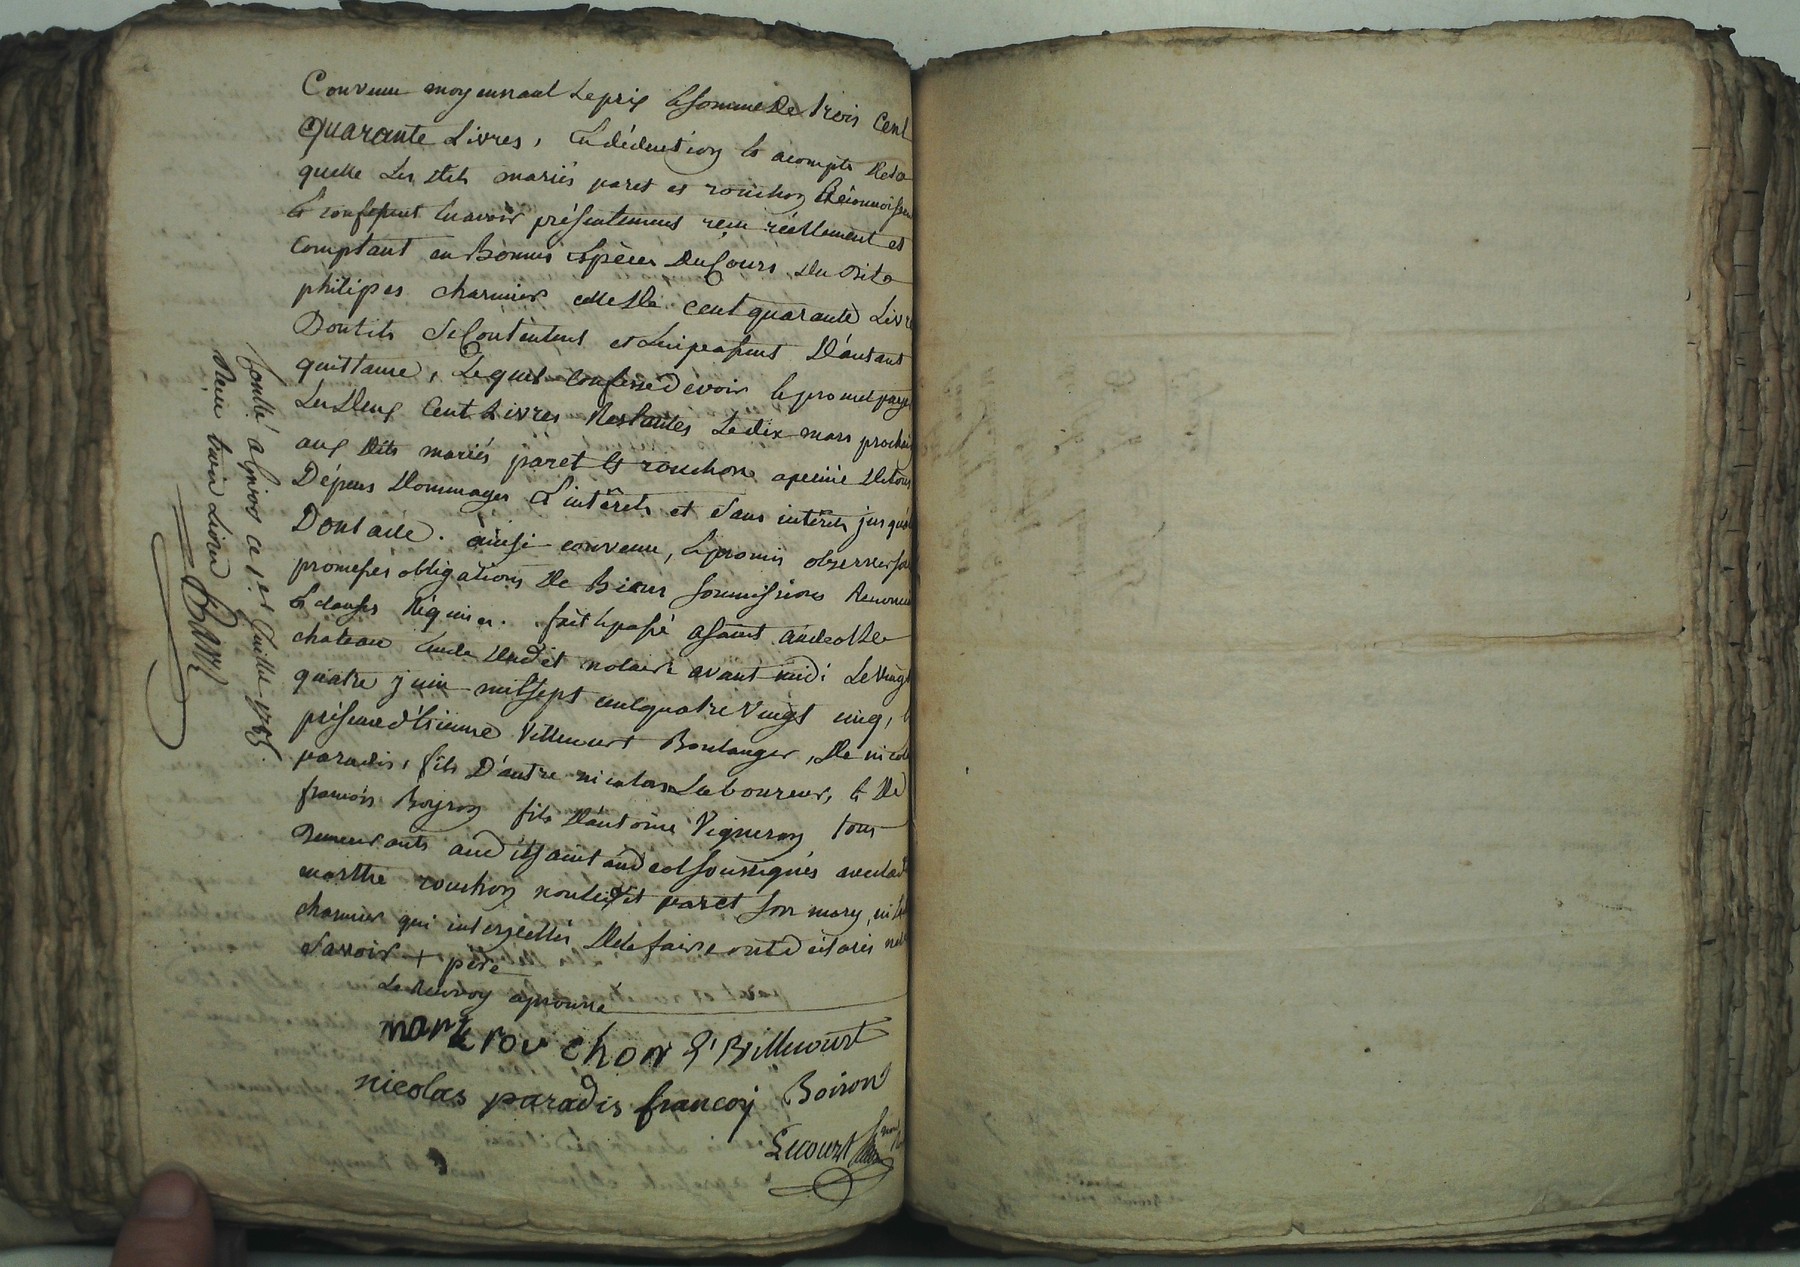 Convenu moyennant le prix & somme De trois cent
quarante Livres, En déduction & acompte De la
quelle Les dits mariés paret et rouchon Reconnoissent
& confessent En avoir présentement reçu réellement et
comptant en Bonnes espèces Du Cours Du dit
philipes charmier celle De cent quarante Livres
Dont ils Se Contentent et Lui passent D'autant
quittance, Lequel confesse devoir & promet payer
Les Deux Cent Livres Restantes Le dix mars prochain
aux Dits mariés paret & rouchon apeine De tous
Dépens Dommages & intérêts et Sans intérêts jusqu'à
Dont acte. ainsi convenu, & promis observer sous
promesses obligations De Biens soumissions Renonc
& clauses Requises. fait & passé a saint andeol le
chateau Etude Dudit notaire avant midi Le vingt
quatre juin mil sept cent quatre vingt cinq, En
présence d'Etienne Villecourt Boulanger, De nicolas
paradis, fils D'autre nicolas Laboureur, & De
francois Boyron fils D'antoine Vigneron tous
Demeurants aud it saint andeol soussignés avec lad
marthe rouchon non ledit paret son mary, ni led
charmier qui interpellés De le faire ont déclarés ne le
Savoir + père
Le Renvoy aprouvé
marte rouchon E' Villecourt
nicolas paradis francoy Boiron
Lecourt
Contlé a Givors ce 1er Juillet 1785.
Reçu trois Livres